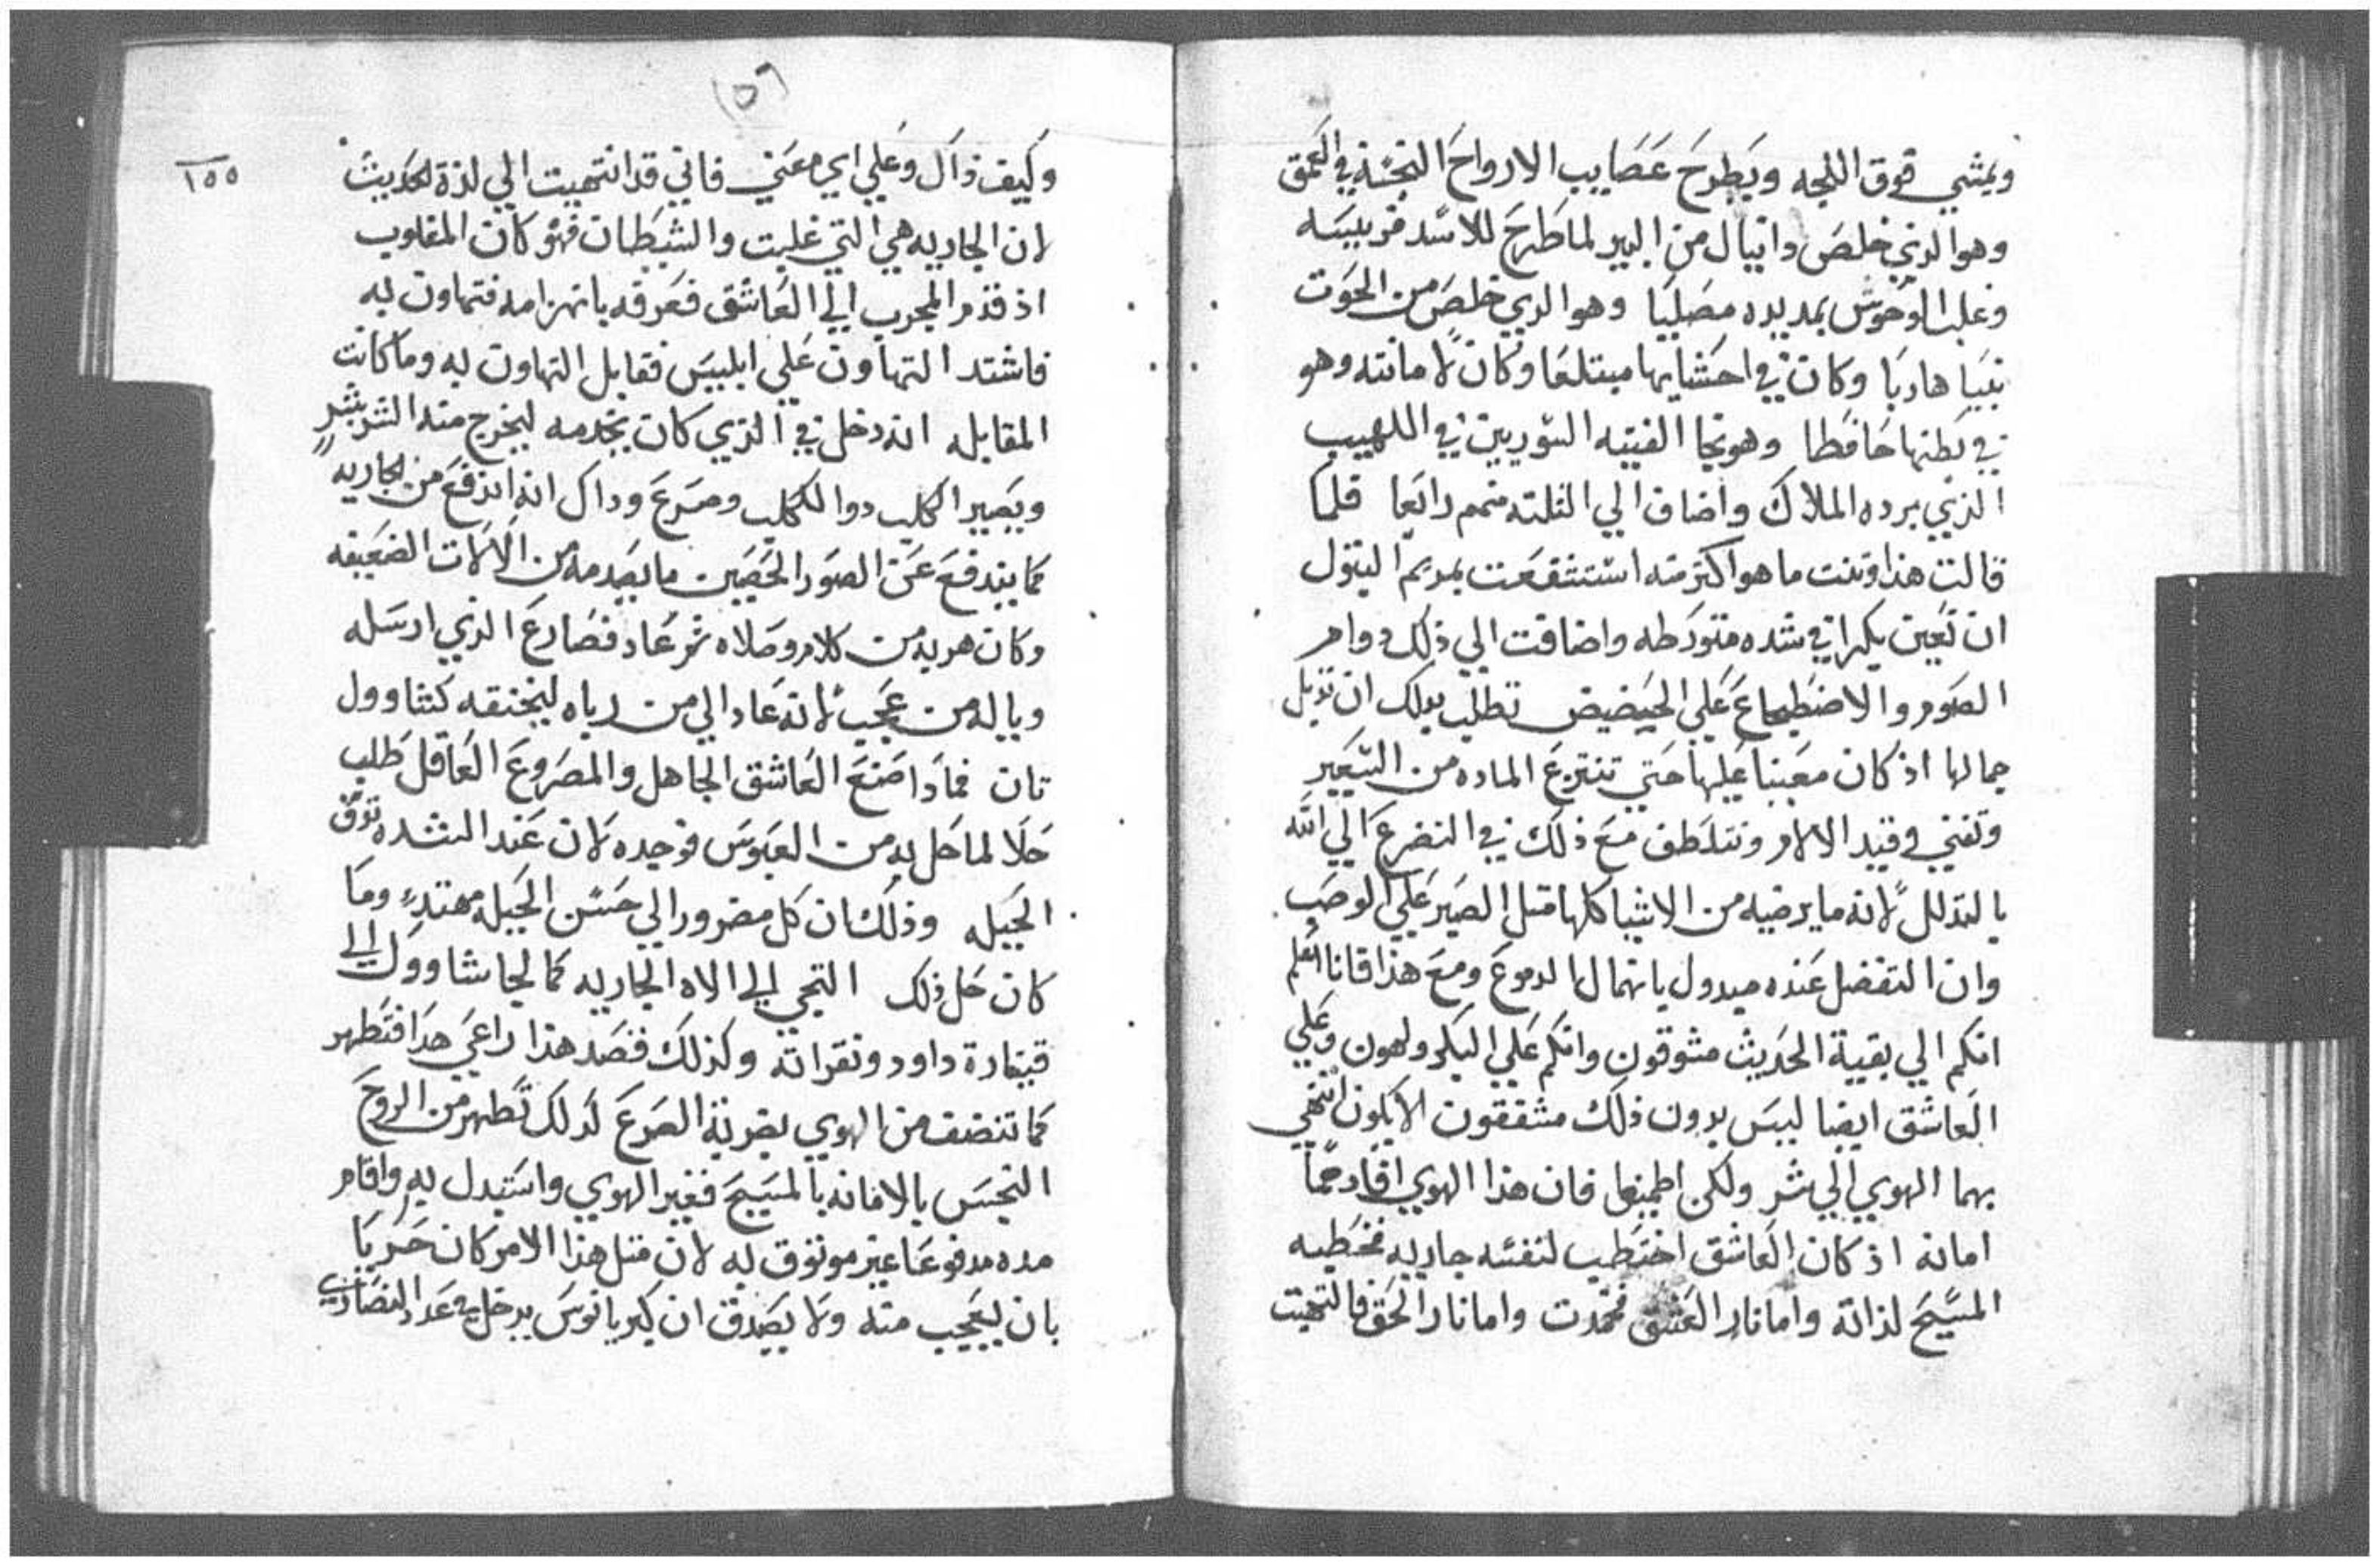 ويمشي فوق اللجه ويطرح عصايب الارواح النجسة في العمق
وهو الذي خلص دانيال من البير لما طرح للاسد فريسه
وغلب الوحوش بمد يده مصليا وهو الدي خلص من الحوت
نبيا هاربا وكان في احشايها مبتلعا وكان لامانته وهو
في بطنها حافظا وهو نجا الفتيه السوريين في اللهيب
الذي برده الملاك واضاف الي الثلته منهم رابعا فلما
قالت هذا وتنت ما هو اكتر منه استشفعت بمريم البتول
ان تعين بكرا في شده متورطه واضافت الي ذلك دوام
الصوم والاضطجاع علي الحضيض تطلب بدلك ان تدبل
جمالها اذ كان معينا عليها حتي تنتزع الماده من السعير
وتفني وقيد الالام وتتلطف مع ذلك في التضرع الي الله
بالتدلل لانه ما يرضيه من الاشيا كلها متل الصبر علي الوصب
وان التفضل عنده مبدول بانهمال الدموع ومع هذا فانا اعلم
انكم الي بقية الحديث مشوقون وانكم علي البكر ولهون وعلي
العاشق ايضا ليس بدون ذلك مشفقون الا يكون انتهي
بهما الهوي الي شر ولكن اطمينوا فان هذا الهوي افادهما
امانه اذ كان العاشق اختطب لنفسه جاريه فخطبه
المسيح لذاته واما نار العشق فخمدت واما نار الحق فالتهبت
١٥٥
وكيف ذاك وعلي اي معني فاني قد انتهيت الي لذة الحديث
لان الجاريه هي التي غلبت والشيطان فهو كان المغلوب
اذ قدم المجرب الي العاشق فعرفه بانهزامه فتهاون به
فاشتد التهاون علي ابليس فقابل التهاون به وما كانت
المقابله انه دخل في الذي كان يخدمه ليخرج منه الشر بشر
ويصير الكلب دوا لكلب وصرع وداك انه اندفع من الجاريه
كما يندفع عن الصور الحصين ما يصدمه من الالات الضعيفه
وكان هربه من كلام وصلاه ثم عاد فصارع الذي ارسله
ويا له من عجب لانه عاد الي من رباه ليخنقه كشاوول
تان فماذا صنع العاشق الجاهل والمصروع العاقل طلب
حلا لما حل به من العبوس فوجده لان عند الشده توق
الحيله وذلك ان كل مضرور الي حسن الحيله مهتدٍ وما
كان حل ذلك التجي الي الاه الجاريه كما لجا شاوول الي
قيتارة داود ونقراته وكذلك قصد هذا راعي هدا فتطهر
كما تنضف من الهوي بضربة الصرع لدلك تطهر من الروح
النجس بالامانه بالمسيح فغير الهوي واستبدل به واقام
مده مدفوعا غير موتوق به لان متل هذا الامر كان حريا
بان يعجب منه ولا يصدق ان كبريانوس يدخل في عداد النصاري